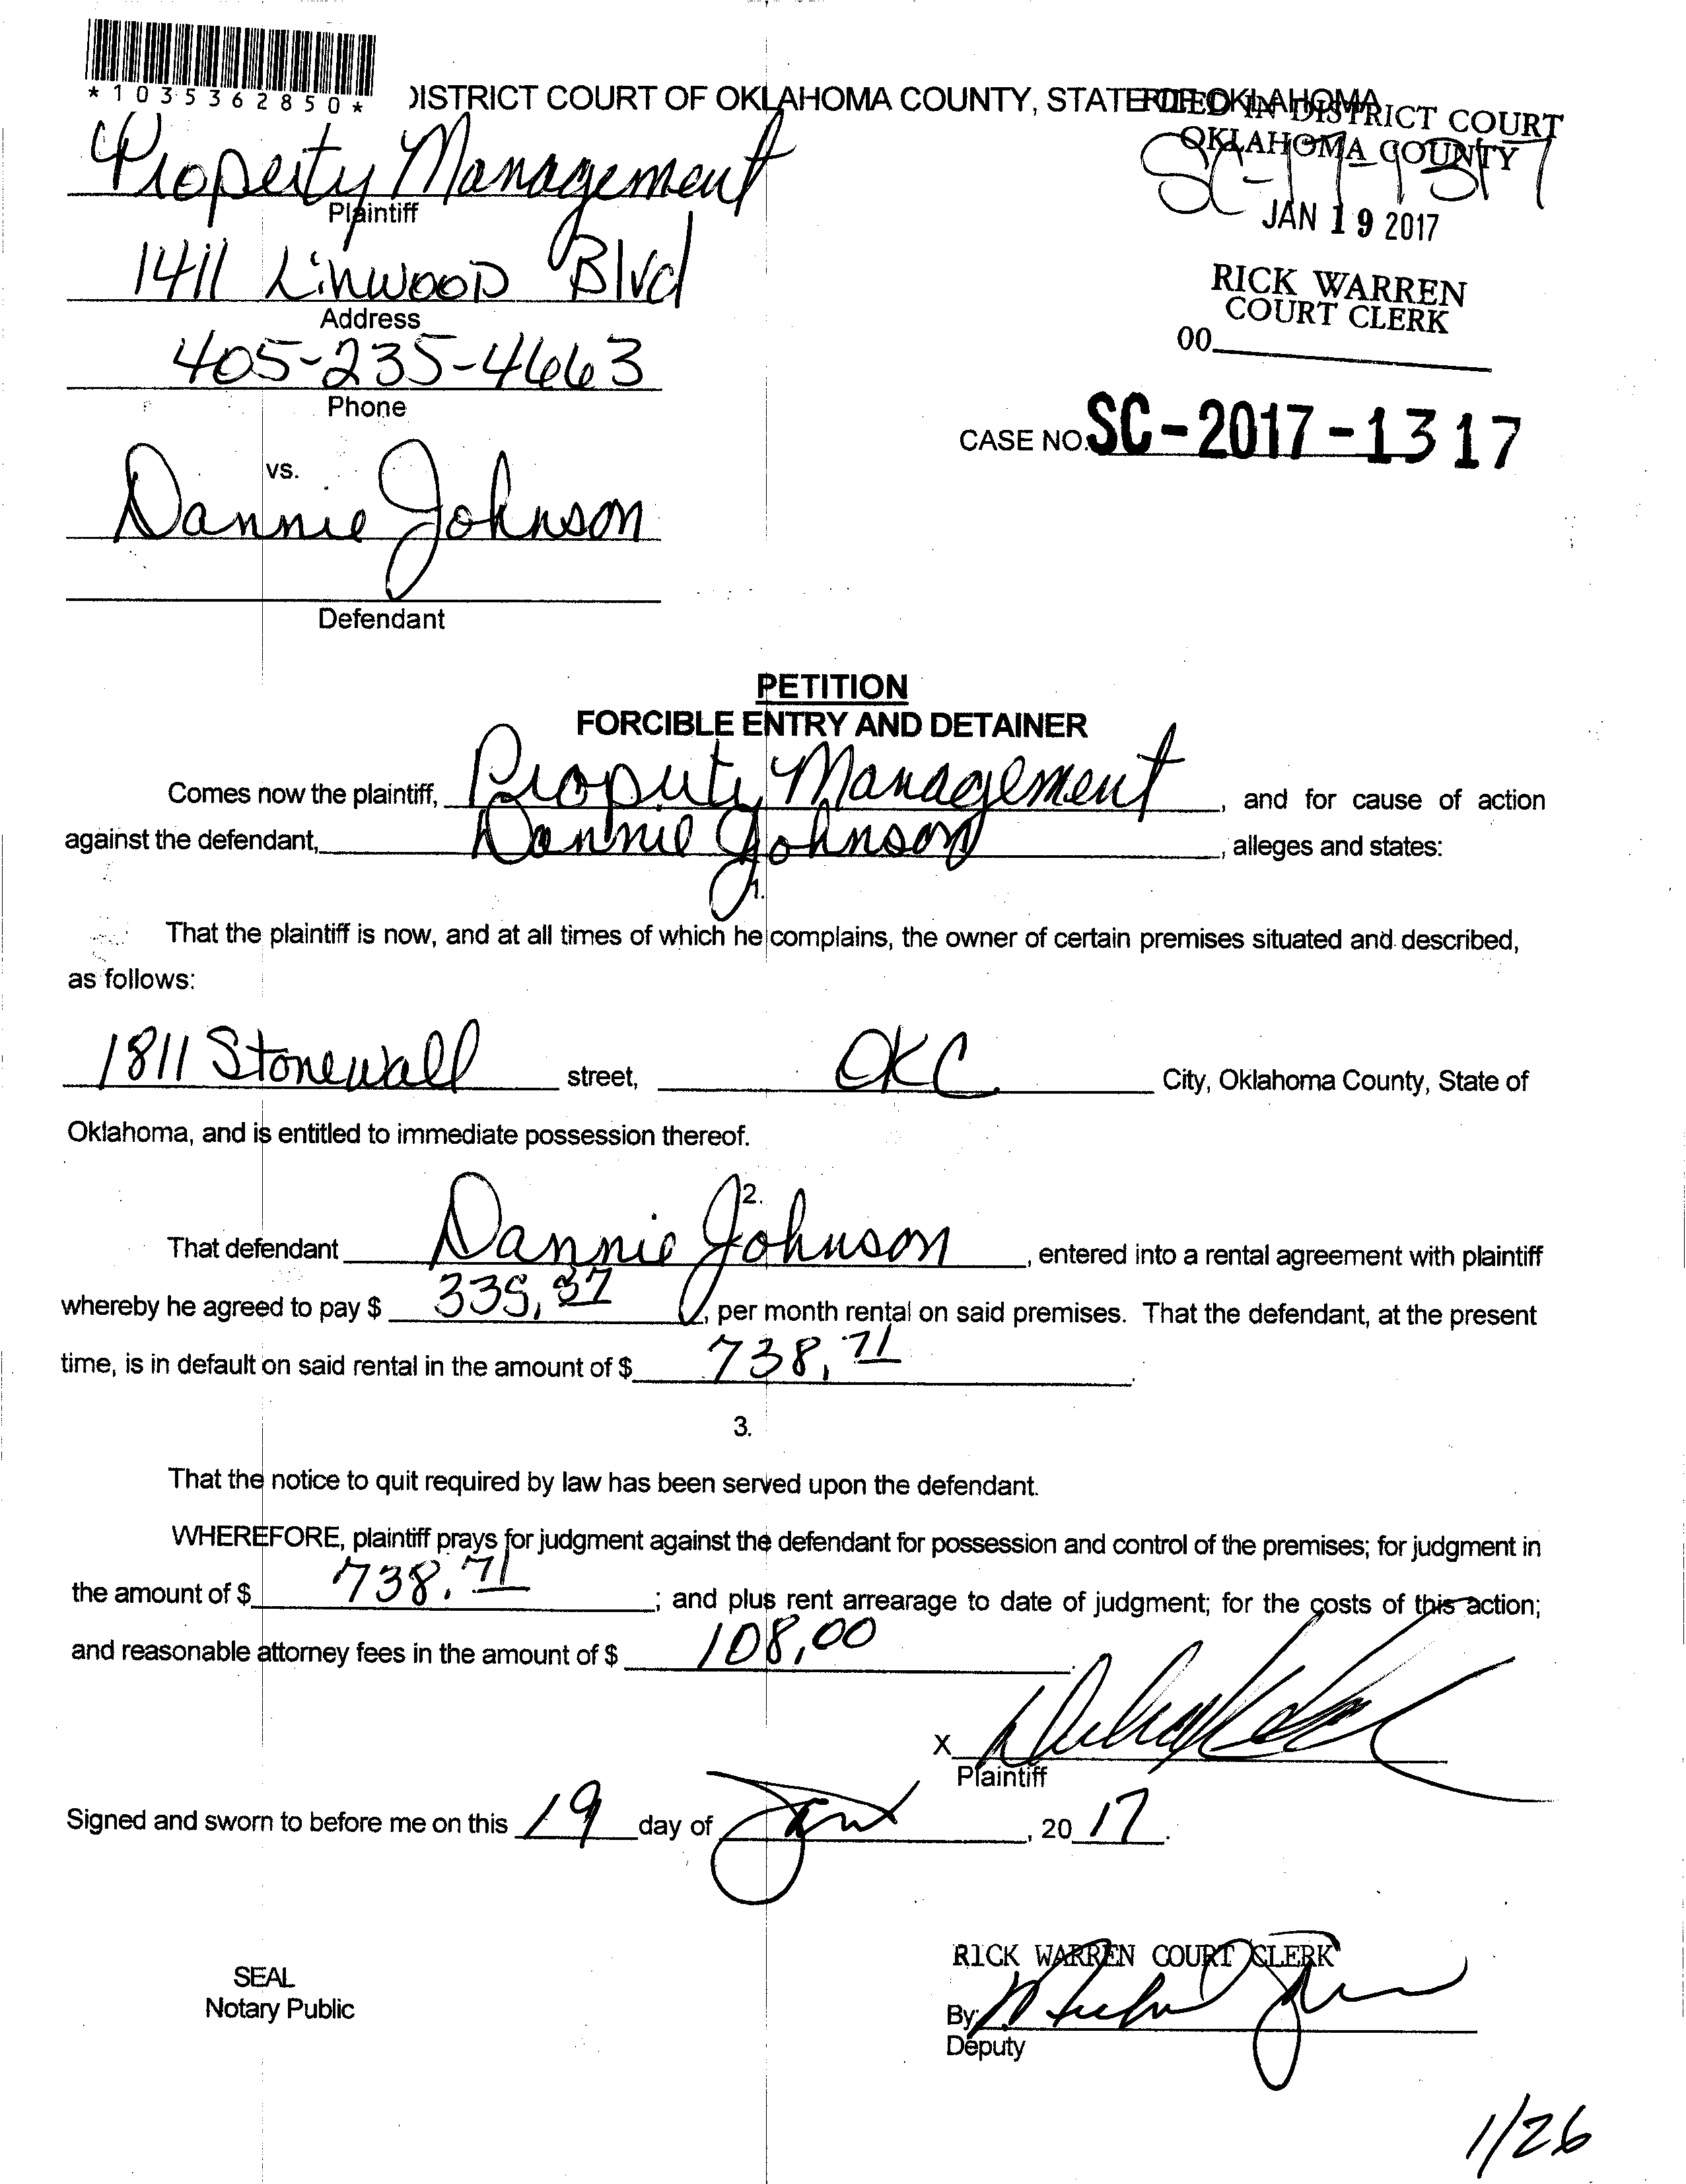 *1035362850*
DISTRICT COURT OF OKLAHOMA COUNTY, STATE OF OKLAHOMA
FILED IN DISTRICT COURT
OKLAHOMA COUNTY
SC-17-1317
JAN 19 2017
RICK WARREN
COURT CLERK
00
Property Management
Plaintiff
1411 Linwood Blvd
Address
405-235-4663
Phone
CASE NO. SC-2017-1317
vs.
Dannie Johnson
Defendant
PETITION
FORCIBLE ENTRY AND DETAINER
Comes now the plaintiff, Property Management, and for cause of action
against the defendant, Dannie Johnson, alleges and states:
1.
That the plaintiff is now, and at all times of which he complains, the owner of certain premises situated and described,
as follows:
1811 Stonewall street, OKC City, Oklahoma County, State of
Oklahoma, and is entitled to immediate possession thereof.
2.
That defendant Dannie Johnson, entered into a rental agreement with plaintiff
whereby he agreed to pay $ , per month rental on said premises. That the defendant, at the present
time, is in default on said rental in the amount of $ 738.71.
3.
That the notice to quit required by law has been served upon the defendant.
WHEREFORE, plaintiff prays for judgment against the defendant for possession and control of the premises; for judgment in
the amount of $ 738.71; and plus rent arrearage to date of judgment; for the costs of this action;
and reasonable attorney fees in the amount of $ 108.00.
X
Plaintiff
Signed and sworn to before me on this 19 day of Jan, 2017.
RICK WARREN COURT CLERK
SEAL
Notary Public
By:
Deputy
1/26